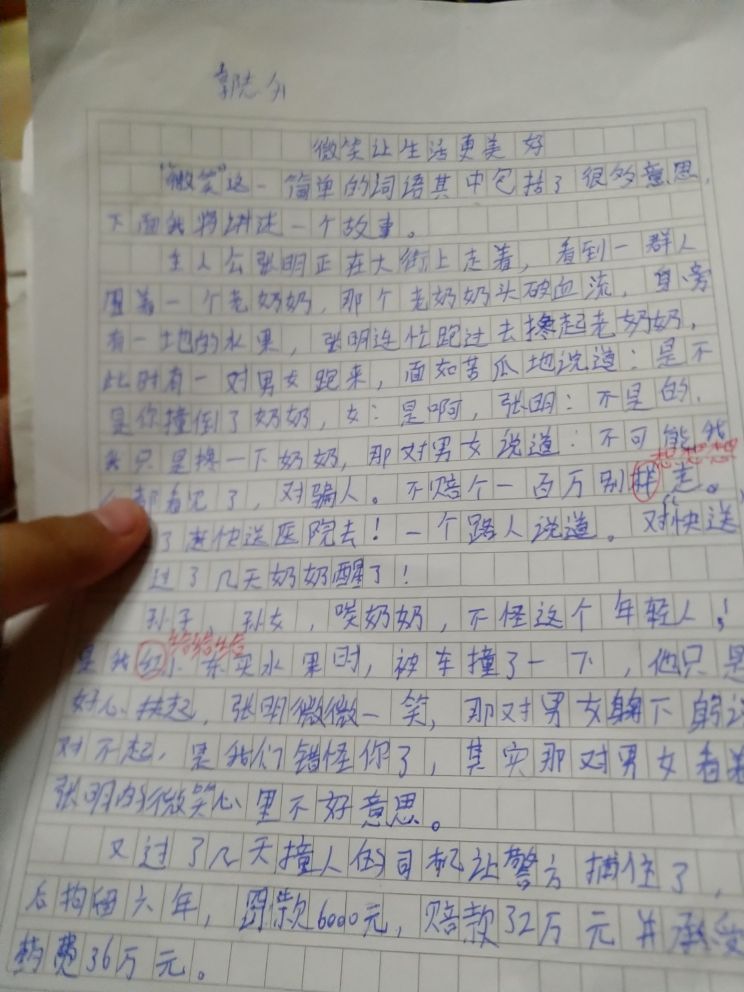 微笑让生活更美好
"微笑"这一简单的词语其中包括了很多意思，
下面我将讲述一个故事。
主人公张明正在大街上走着，看到一群人
围着一个老奶奶，那个老奶奶头破血流，身旁
有一地的水果，张明连忙跑过去搀起老奶奶，
此时有一对男女跑来，面如苦瓜地说道：是不
是你撞倒了奶奶，女：是啊，张明：不是的，
我只是搀一下奶奶，那对男女说道：不可能我
都看见了，对骗人。不赔个一百万别想走。
想想想
了赶快送医院去！一个路人说道。对快送
过了几天奶奶醒了！
孙子，孙女，唉奶奶，不怪这个年轻人！
给给给给
是我 小东买水果时，被车撞了一下，他只是
好心扶起，张明微微一笑，那对男女鞠下躬说
对不起，是我们错怪你了，其实那对男女看着
张明的微笑心里不好意思。
又过了几天撞人的司机让警方捕住了，
后拘留六年，罚款6000元，赔款32万元并承受
药费36万元。